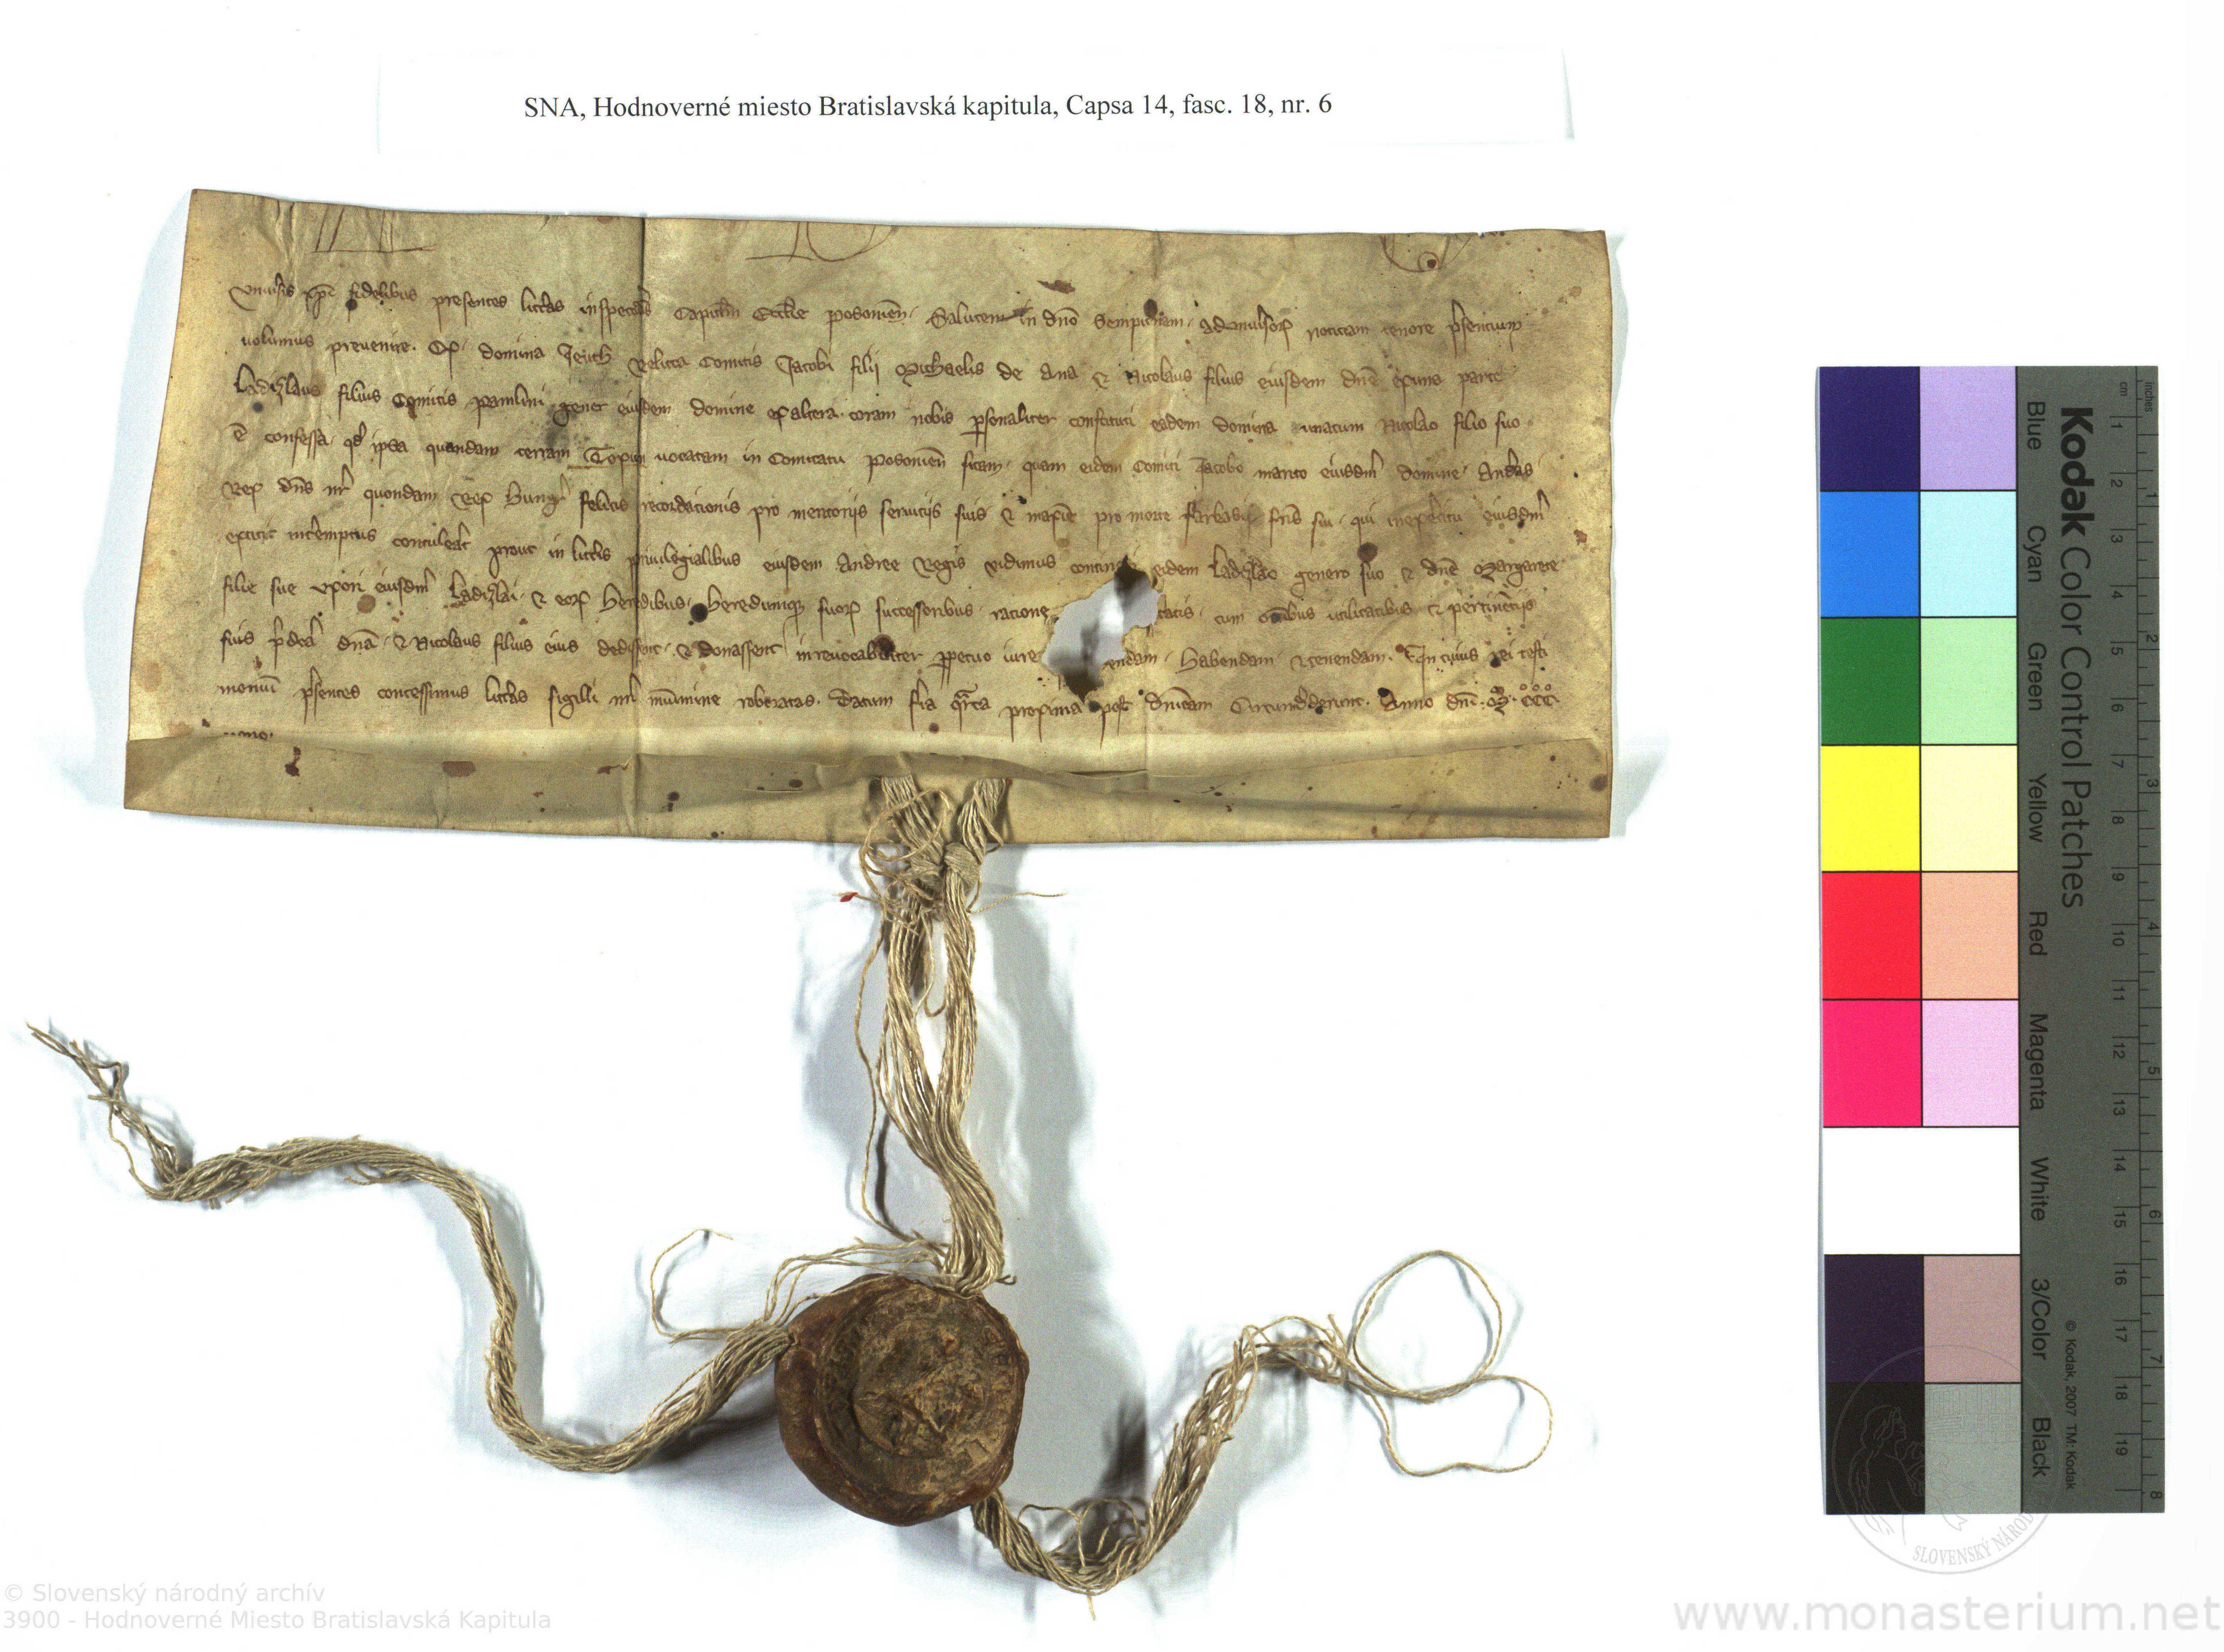 SNA, Hodnoverné miesto Bratislavská kapitula, Capsa 14, fasc. 18, nr. 6
Vniu͛sis xp̄i fidelibus presentes litt͛as inspecturis Capitl̄m Eccl̄ie posonien̄. Salutem in dn̄o sempit͛nam. Ad vniu͛sorꝝ notitiam tenore p͛sentium
uolumus preuenire. Qd. domina relicta Comitis Jacobi filij Mychaelis de Ana & Nicolaus filius eiusdem dn̄e ex una parte
Ladizlaus filius Comitis gener eiusdem domine ex altera. coram nobis ꝑsonaliter constituti eadem domina unacum Nicolao filio suo
ē confessa. qd̄ ipsa quandam terram uocatam in Comitatu posonien̄ sitam. quam eidem Comiti Jacobo marito eiusdm̄ domine. Andr͛as
Rex dn̄s nr̄ quondam Rex Hung͛ felicis recordationis pro meritorijs seruitijs suis & maxime pro morte fr̄is sui. qui in exercitu eiusdm̄
extitit int͛emptus contulerat prout in litt͛is priuilegialibus eiusdem Andree Regis vidimus contineri eidem Ladizlao genero suo & dn̄e Margarete
filie sue vxori eiusdm̄ Ladizlai. & eorꝝ heredibus. heredumqꝫ suorꝝ successoribus. ratione tatis. cum om̄ibus utilitatibus & pertinētijs
suis p͛dc̄a dn̄a. & Nicolaus filius eius dedissent. & donassent inreuocabiliter ꝑpetuo iure endam. habendam & tenendam. In cuius rei testi
moniū p͛sentes concessimus litt͛as sigilli nr̄i mūnimine roboratas. Datum fr̄ia qͣrta proxima post dn̄icam Circumdederunt. Anno dn̄i. Mͦ. CͦCͦCͦ
nono.
Kodak Color Control Patches
Blue
Cyan
Green
Yellow
Red
Magenta
White
3/Color
Black
© Kodak, 2007 TM: Kodak
cm 1 2 3 4 5 6 7 8 9 10 11 12 13 14 15 16 17 18 19
inches 1 2 3 4 5 6 7 8
SLOVENSKÝ NÁROD
© Slovenský národný archív
3900 - Hodnoverné Miesto Bratislavská Kapitula
www.monasterium.net